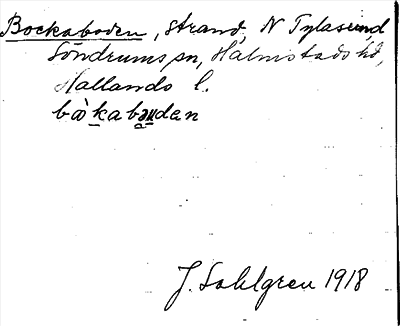 Bockaboden, strand, N Tylasund,
Söndrums sn, Halmstads hd,
Hallands l.
bòkabəuden
J. Sahlgren 1918